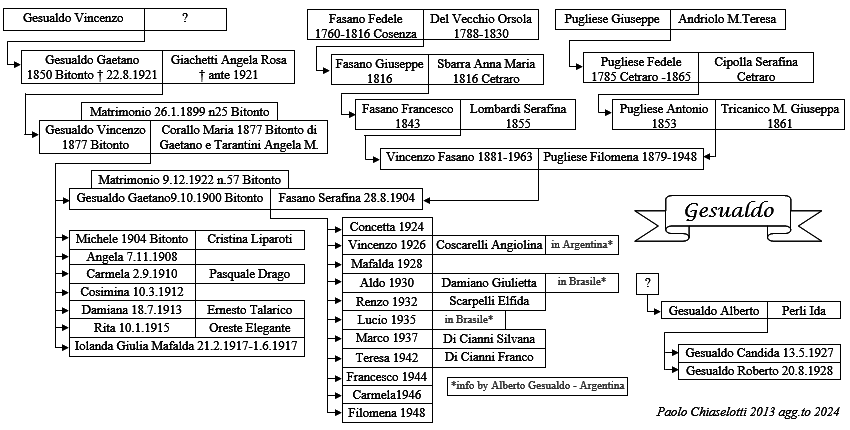 Gesualdo Vincenzo ?
Fasano Fedele Del Vecchio Orsola
1760-1816 Cosenza 1788-1830
Pugliese Giuseppe Andriolo M.Teresa
Gesualdo Gaetano Giachetti Angela Rosa
1850 Bitonto † 22.8.1921 † ante 1921
Fasano Giuseppe Sbarra Anna Maria
1816 1816 Cetraro
Pugliese Fedele Cipolla Serafina
1785 Cetraro -1865 Cetraro
Matrimonio 26.1.1899 n25 Bitonto
Gesualdo Vincenzo Corallo Maria 1877 Bitonto di
1877 Bitonto Gaetano e Tarantini Angela M.
Fasano Francesco Lombardi Serafina
1843 1855
Pugliese Antonio Tricanico M. Giuseppa
1853 1861
Vincenzo Fasano 1881-1963 Pugliese Filomena 1879-1948
Matrimonio 9.12.1922 n.57 Bitonto
Gesualdo Gaetano9.10.1900 Bitonto Fasano Serafina 28.8.1904
Gesualdo
Michele 1904 Bitonto Cristina Liparoti
Angela 7.11.1908
Carmela 2.9.1910 Pasquale Drago
Cosimina 10.3.1912
Damiana 18.7.1913 Ernesto Talarico
Rita 10.1.1915 Oreste Elegante
Iolanda Giulia Mafalda 21.2.1917-1.6.1917
Concetta 1924
Vincenzo 1926 Coscarelli Angiolina in Argentina*
Mafalda 1928
Aldo 1930 Damiano Giulietta in Brasile*
Renzo 1932 Scarpelli Elfida
Lucio 1935 in Brasile*
Marco 1937 Di Cianni Silvana
Teresa 1942 Di Cianni Franco
Francesco 1944
Carmela1946
Filomena 1948
*info by Alberto Gesualdo - Argentina
?
Gesualdo Alberto Perli Ida
Gesualdo Candida 13.5.1927
Gesualdo Roberto 20.8.1928
Paolo Chiaselotti 2013 agg.to 2024